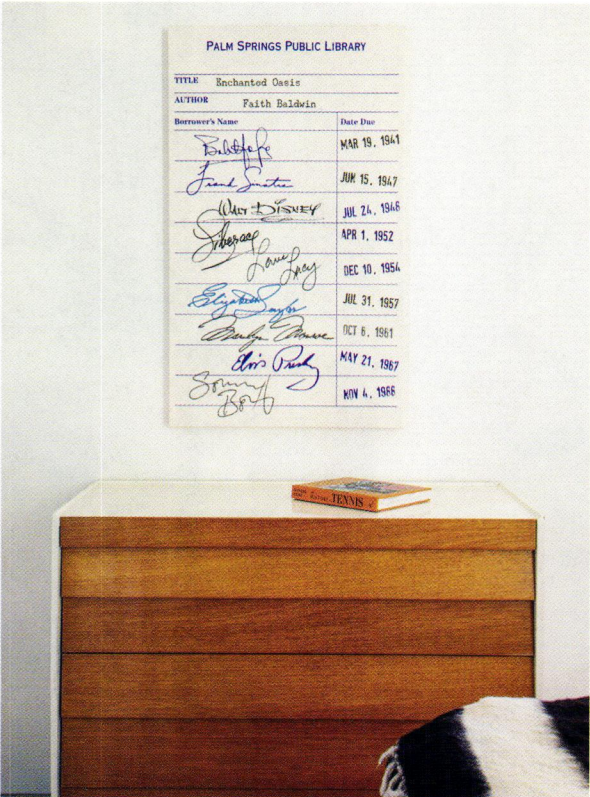 PALM SPRINGS PUBLIC LIBRARY
TITLE Enchanted Oasis
AUTHOR Faith Baldwin
Borrower's Name Date Due
Bob Hope MAR 19, 1941
Frank Sinatra JUN 15, 1947
WALT DISNEY JUL 24, 1948
Liberace APR 1, 1952
Love Lucy DEC 10, 1954
Elizabeth Taylor JUL 31, 1957
Marilyn Monroe OCT 6, 1961
Elvis Presley MAY 21, 1967
Sonny Bono NOV 4, 1988
TENNIS